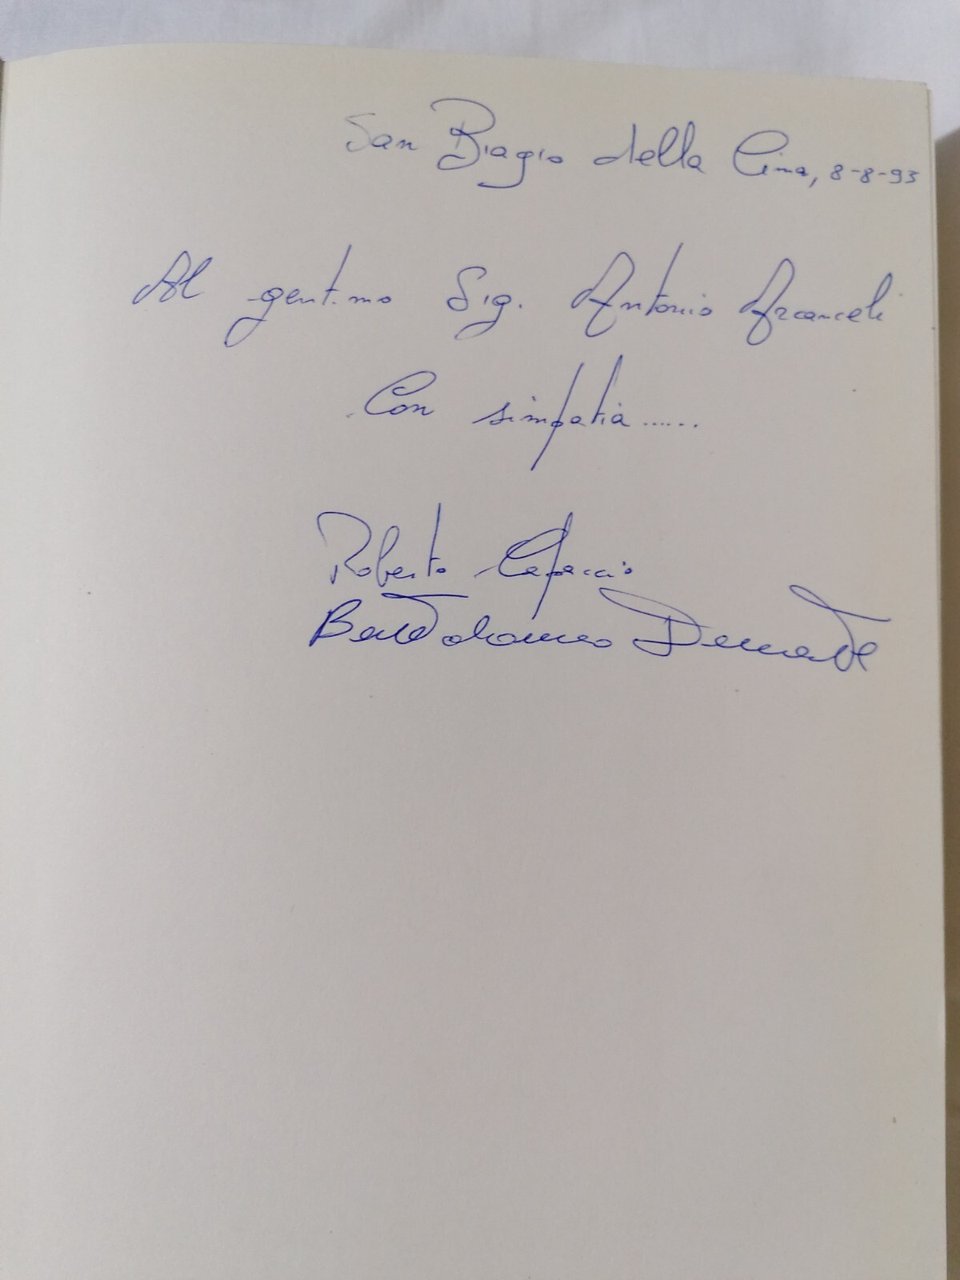 San Biagio della Cima, 8-8-93
Al gent.mo Sig. Antonio Arcanceli
Con simpatia......
Roberto Capaccio
Bartolomeo Durante